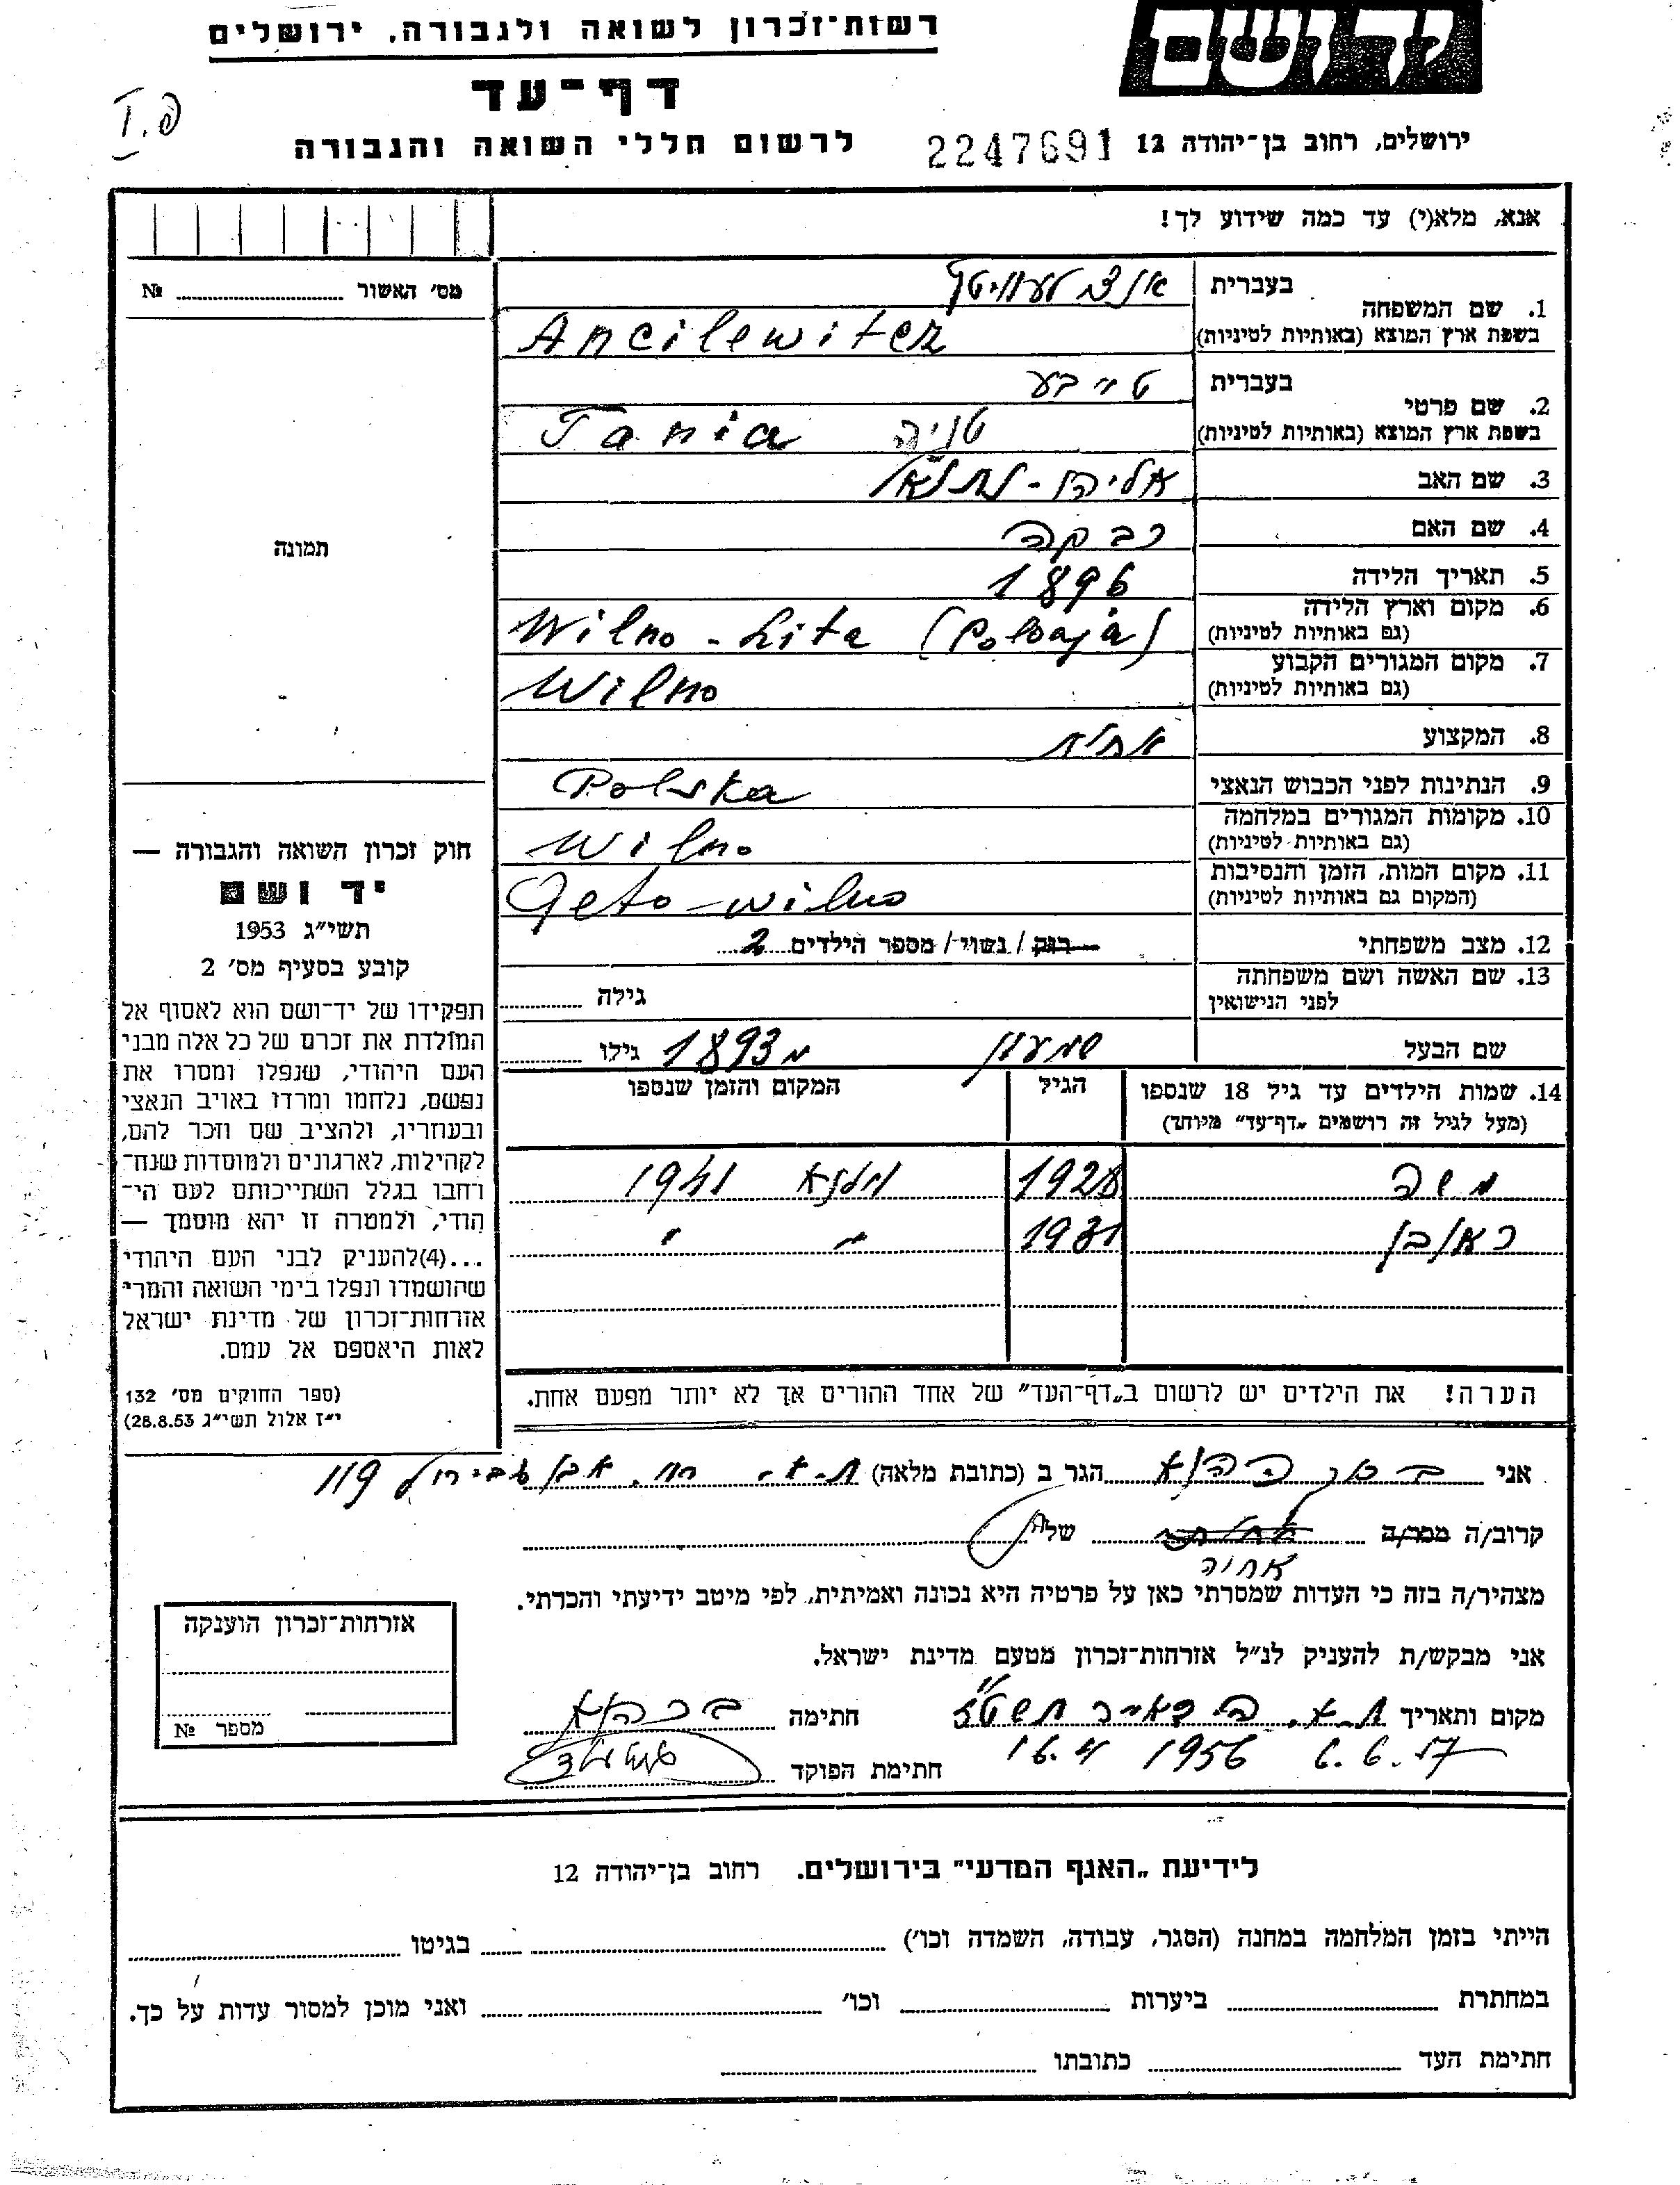 רשות־זכרון לשואה ולגבורה, ירושלים
יד ושם
דף־עד
I.פ
לרשום חללי השואה והגבורה
2247691
ירושלים, רחוב בן־יהודה 12
אנא, מלא(י) עד כמה שידוע לך!
מס' האשור № 
1. שם המשפחה בעברית
בשפת ארץ המוצא (באותיות לטיניות)
Ancilewitez
2. שם פרטי בעברית טייבע
בשפת ארץ המוצא (באותיות לטיניות) טניה Tania
3. שם האב אליהו - נתנאל
4. שם האם רבקה
תמונה
5. תאריך הלידה 1896
6. מקום וארץ הלידה
(גם באותיות לטיניות) Wilno - Lita
7. מקום המגורים הקבוע
(גם באותיות לטיניות) Wilno
8. המקצוע אחות
9. הנתינות לפני הכבוש הנאצי Polska
10. מקומות המגורים במלחמה
(גם באותיות לטיניות) Wilno
11. מקום המות, הזמן והנסיבות
(המקום גם באותיות לטיניות) Geto - Wilno
12. מצב משפחתי רוק / נשוי / מספר הילדים 2
13. שם האשה ושם משפחתה
לפני הנישואין גילה
שם הבעל שמעון גילו מ 1893
14. שמות הילדים עד גיל 18 שנספו הגיל המקום והזמן שנספו
(מעל לגיל זה רושמים „דף־עד" מיוחד)
משה 1928 ווילנא 1941
ראובן 1931 " "
הערה! את הילדים יש לרשום ב„דף־העד" של אחד ההורים אך לא יותר מפעם אחת.
חוק זכרון השואה והגבורה —
יד ושם
תשי"ג 1953
קובע בסעיף מס' 2
תפקידו של יד־ושם הוא לאסוף אל
המולדת את זכרם של כל אלה מבני
העם היהודי, שנפלו ומסרו את
נפשם, נלחמו ומרדו באויב הנאצי
ובעוזריו, ולהציב שם וזכר להם,
לקהילות, לארגונים ולמוסדות שנח־
רבו בגלל השתייכותם לעם הי־
הודי, ולמטרה זו יהא מוסמך —
...(4)להעניק לבני העם היהודי
שהושמדו ונפלו בימי השואה והמרי
אזרחות־זכרון של מדינת ישראל
לאות היאספם אל עמם.
(ספר החוקים מס' 132
י"ז אלול תשי"ג 28.8.53)
אני הגר ב (כתובת מלאה) ת-א. רח. אבן גבירול 119
קרוב/ה מכר/ה של
אחיה
מצהיר/ה בזה כי העדות שמסרתי כאן על פרטיה היא נכונה ואמיתית, לפי מיטב ידיעתי והכרתי.
אני מבקש/ת להעניק לנ"ל אזרחות־זכרון מטעם מדינת ישראל.
אזרחות־זכרון הוענקה
מספר №
מקום ותאריך ת-א. חתימה
1956 חתימת הפוקד
לידיעת „האגף המדעי" בירושלים. רחוב בן־יהודה 12
הייתי בזמן המלחמה במחנה (הסגר, עבודה, השמדה וכו') בגיטו
במחתרת ביערות וכו' ואני מוכן למסור עדות על כך.
חתימת העד כתובתו